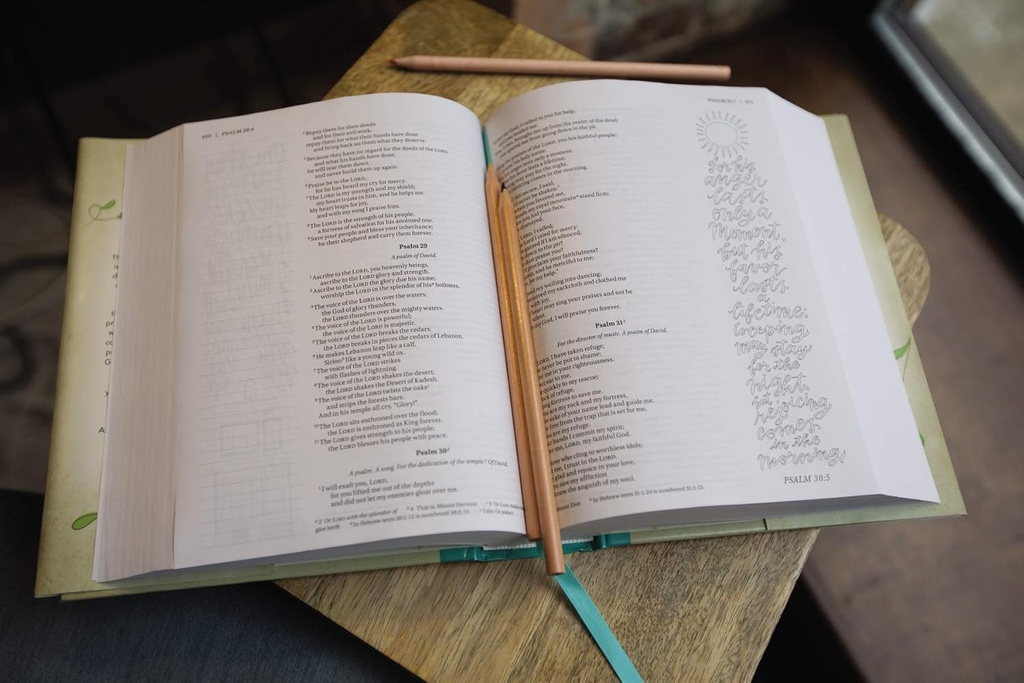 PSALM 28:4
⁴Repay them for their deeds
and for their evil work;
repay them for what their hands have done
and bring back on them what they deserve.
⁵Because they have no regard for the deeds of the LORD
and what his hands have done,
he will tear them down
and never build them up again.
⁶Praise be to the LORD,
for he has heard my cry for mercy.
⁷The LORD is my strength and my shield;
my heart trusts in him, and he helps me.
My heart leaps for joy,
and with my song I praise him.
⁸The LORD is the strength of his people,
a fortress of salvation for his anointed one.
⁹Save your people and bless your inheritance;
be their shepherd and carry them forever.
Psalm 29
A psalm of David.
¹Ascribe to the LORD, you heavenly beings,
ascribe to the LORD glory and strength.
²Ascribe to the LORD the glory due his name;
worship the LORD in the splendor of his holiness.
³The voice of the LORD is over the waters;
the God of glory thunders,
the LORD thunders over the mighty waters.
⁴The voice of the LORD is powerful;
the voice of the LORD is majestic.
⁵The voice of the LORD breaks the cedars;
the LORD breaks in pieces the cedars of Lebanon.
⁶He makes Lebanon leap like a calf,
Sirion like a young wild ox.
⁷The voice of the LORD strikes
with flashes of lightning.
⁸The voice of the LORD shakes the desert;
the LORD shakes the Desert of Kadesh.
⁹The voice of the LORD twists the oaks
and strips the forests bare.
And in his temple all cry, "Glory!"
¹⁰The LORD sits enthroned over the flood;
the LORD is enthroned as King forever.
¹¹The LORD gives strength to his people;
the LORD blesses his people with peace.
Psalm 30
A psalm. A song. For the dedication of the temple. Of David.
¹I will exalt you, LORD,
for you lifted me out of the depths
and did not let my enemies gloat over me.
called to you for help,
up from the realm of the dead;
from going down to the pit.
of the LORD, you his faithful people;
holy name.
lasts only a moment,
lasts a lifetime;
stay for the night,
comes in the morning.
secure, I said,
never be shaken.
you favored me,
my royal mountain stand firm;
you hid your face,
LORD, I called;
Lord I cried for mercy:
if I am silenced,
down to the pit?
praise you?
proclaim your faithfulness?
and be merciful to me;
be my help.
my wailing into dancing;
my sackcloth and clothed me
with joy,
heart may sing your praises and not be
silent.
my God, I will praise you forever.
Psalm 31
For the director of music. A psalm of David.
LORD, I have taken refuge;
never be put to shame;
me in your righteousness.
ear to me,
quickly to my rescue;
rock of refuge,
fortress to save me.
are my rock and my fortress,
sake of your name lead and guide me.
free from the trap that is set for me,
are my refuge.
hands I commit my spirit;
me, LORD, my faithful God.
those who cling to worthless idols;
me, I trust in the LORD.
glad and rejoice in your love,
saw my affliction
knew the anguish of my soul.
In Hebrew texts 31:1-24 is numbered 31:2-25.
for his
anger
lasts
only a
moment,
but his
favor
lasts
a
lifetime;
weeping
may stay
for the
night,
but rejoicing
comes
in the
morning.
PSALM 30:5